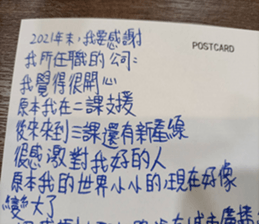 2021年末，我要感謝
POSTCARD
我所在職的公司：
我覺得很開心
原本我在二課支援
後來來到三課還有新產線
很感激對我好的人
原本我的世界小小的，現在好像
變大了